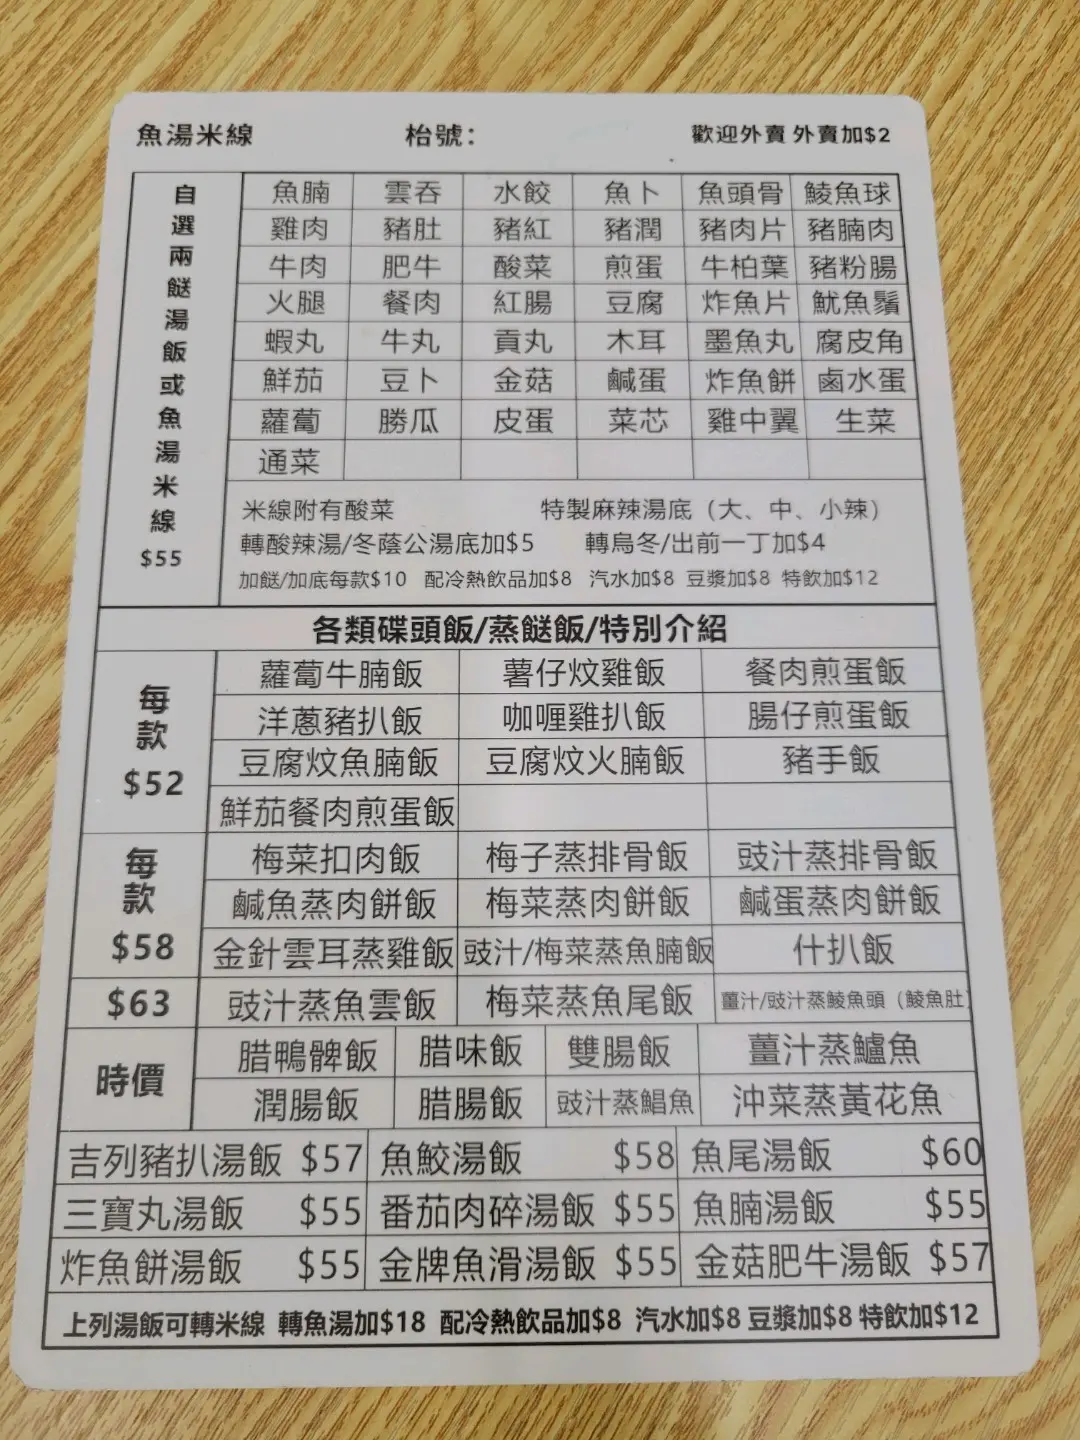 魚湯米線 枱號： 歡迎外賣 外賣加$2
自選兩餸湯飯或魚湯米線 $55
魚腩 雲吞 水餃 魚卜 魚頭骨 鯪魚球
雞肉 豬肚 豬紅 豬潤 豬肉片 豬腩肉
牛肉 肥牛 酸菜 煎蛋 牛柏葉 豬粉腸
火腿 餐肉 紅腸 豆腐 炸魚片 魷魚鬚
蝦丸 牛丸 貢丸 木耳 墨魚丸 腐皮角
鮮茄 豆卜 金菇 鹹蛋 炸魚餅 鹵水蛋
蘿蔔 勝瓜 皮蛋 菜芯 雞中翼 生菜
通菜
米線附有酸菜 特製麻辣湯底（大、中、小辣）
轉酸辣湯/冬蔭公湯底加$5 轉烏冬/出前一丁加$4
加餸/加底每款$10 配冷熱飲品加$8 汽水加$8 豆漿加$8 特飲加$12
各類碟頭飯/蒸餸飯/特別介紹
每款 $52
蘿蔔牛腩飯 薯仔炆雞飯 餐肉煎蛋飯
洋蔥豬扒飯 咖喱雞扒飯 腸仔煎蛋飯
豆腐炆魚腩飯 豆腐炆火腩飯 豬手飯
鮮茄餐肉煎蛋飯
每款 $58
梅菜扣肉飯 梅子蒸排骨飯 豉汁蒸排骨飯
鹹魚蒸肉餅飯 梅菜蒸肉餅飯 鹹蛋蒸肉餅飯
金針雲耳蒸雞飯 豉汁/梅菜蒸魚腩飯 什扒飯
$63 豉汁蒸魚雲飯 梅菜蒸魚尾飯 薑汁/豉汁蒸鯪魚頭（鯪魚肚）
時價
腊鴨髀飯 腊味飯 雙腸飯 薑汁蒸鱸魚
潤腸飯 腊腸飯 豉汁蒸鯧魚 沖菜蒸黃花魚
吉列豬扒湯飯 $57 魚鮫湯飯 $58 魚尾湯飯 $60
三寶丸湯飯 $55 番茄肉碎湯飯 $55 魚腩湯飯 $55
炸魚餅湯飯 $55 金牌魚滑湯飯 $55 金菇肥牛湯飯 $57
上列湯飯可轉米線 轉魚湯加$18 配冷熱飲品加$8 汽水加$8 豆漿加$8 特飲加$12